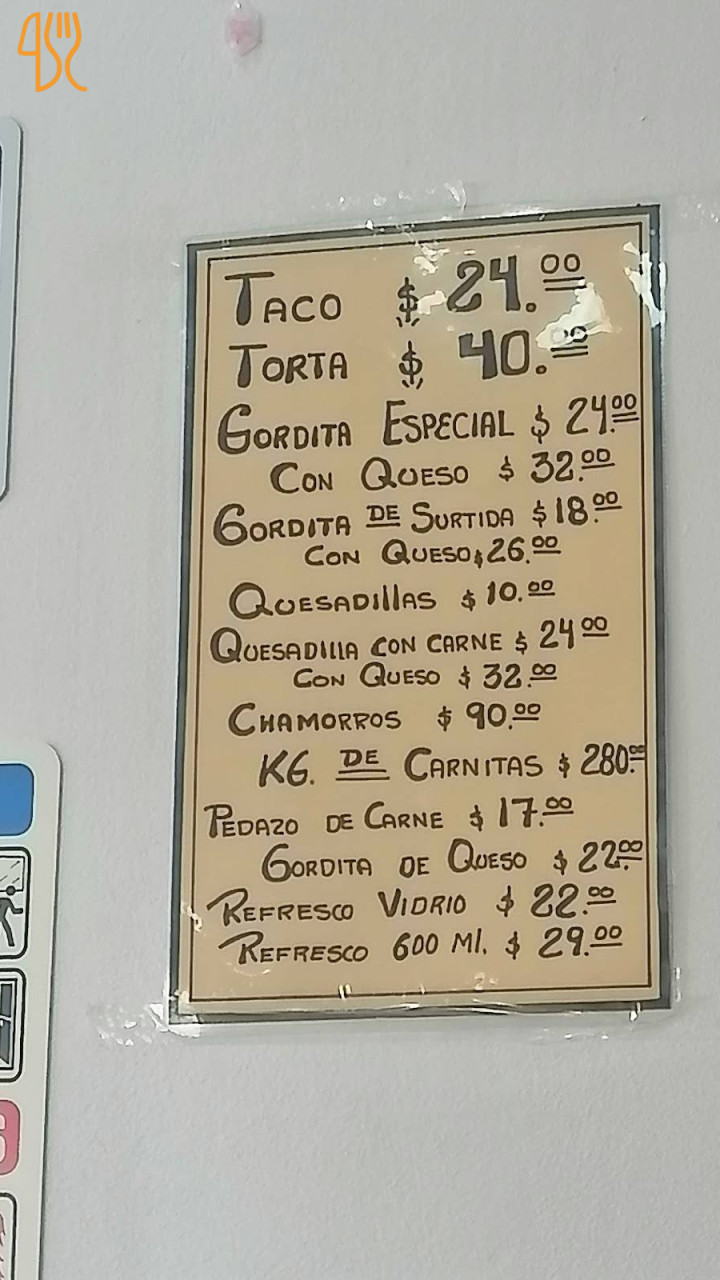 TACO $ 24.00
TORTA $ 40.00
GORDITA ESPECIAL $ 24.00
CON QUESO $ 32.00
GORDITA DE SURTIDA $ 18.00
CON QUESO $ 26.00
QUESADILLAS $ 10.00
QUESADILLA CON CARNE $ 24.00
CON QUESO $ 32.00
CHAMORROS $ 90.00
KG. DE CARNITAS $ 280.00
PEDAZO DE CARNE $ 17.00
GORDITA DE QUESO $ 22.00
REFRESCO VIDRIO $ 22.00
REFRESCO 600 Ml. $ 29.00